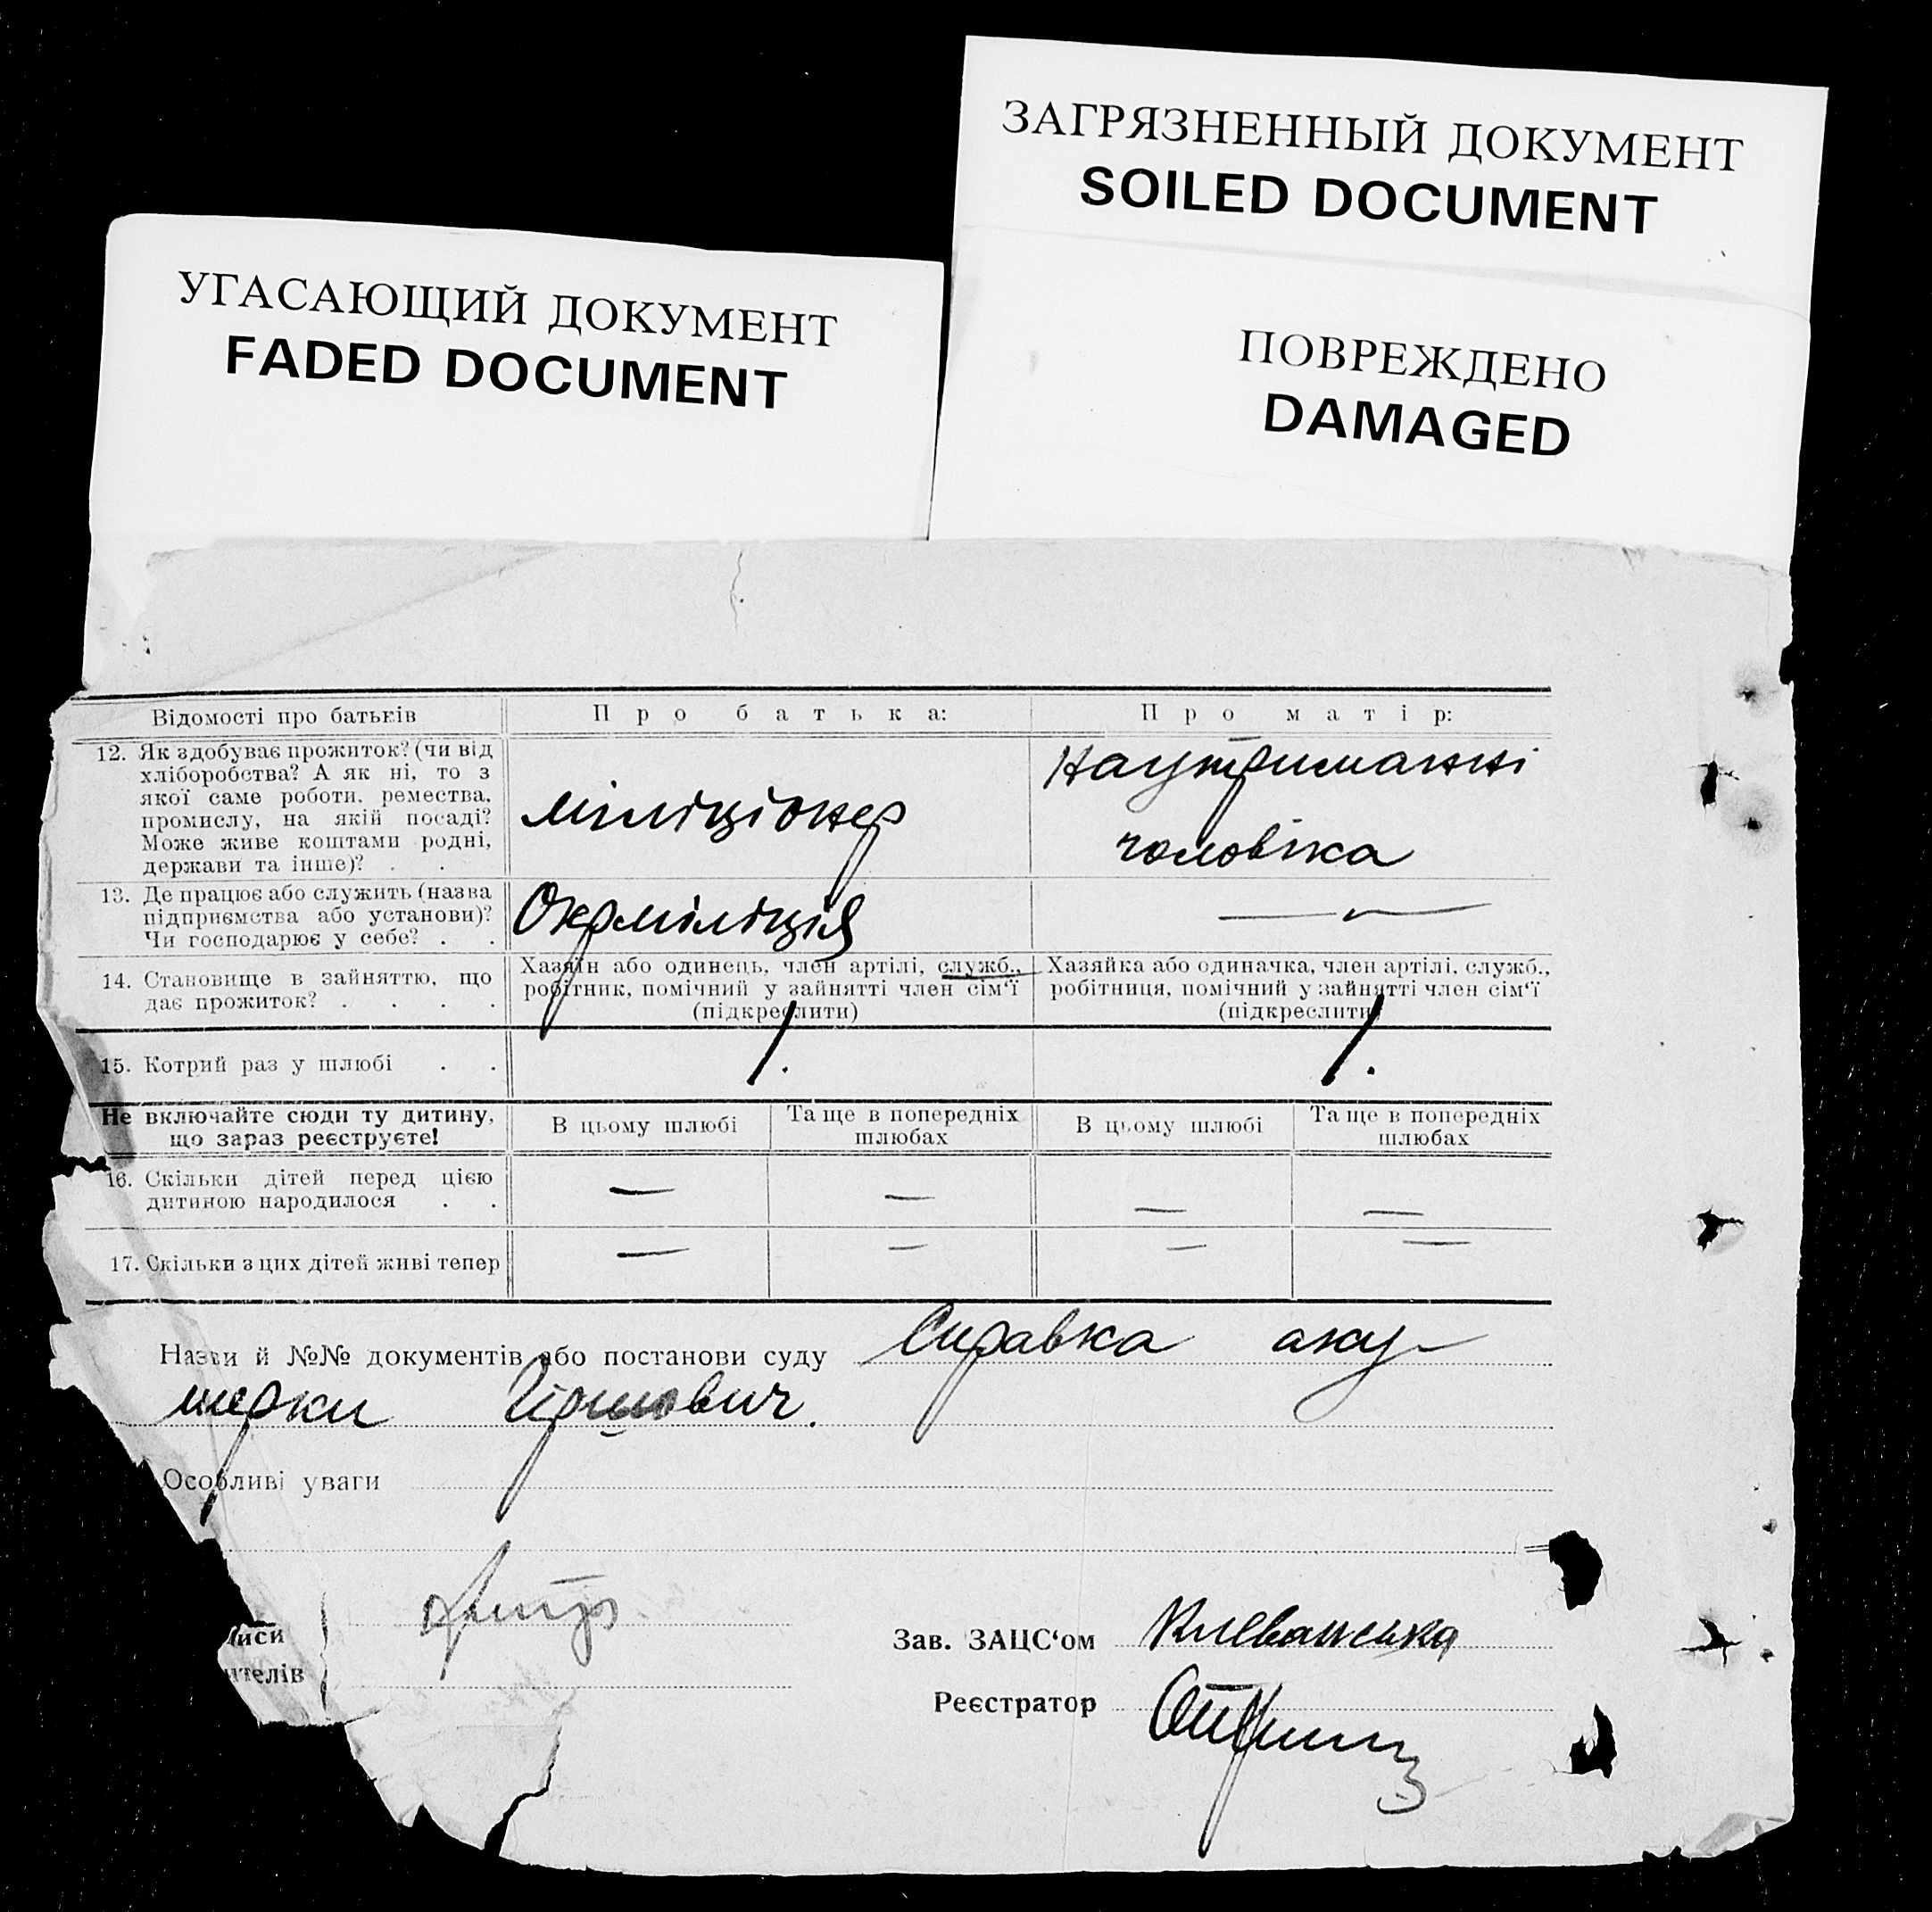 ЗАГРЯЗНЕННЫЙ ДОКУМЕНТ
SOILED DOCUMENT
УГАСАЮЩИЙ ДОКУМЕНТ
FADED DOCUMENT
ПОВРЕЖДЕНО
DAMAGED
Відомості про батьків
Про батька:
Про матір:
12. Як здобуває прожиток? (чи від
хліборобства? А як ні, то з
якої саме роботи, ремества,
промислу, на якій посаді?
Може живе коштами родні,
держави та інше)? . .
міліціонер
На утриманні
чоловіка
13. Де працює або служить (назва
підприємства або установи)?
Чи господарює у себе? . .
Окрміліція
—
14. Становище в зайняттю, що
дає прожиток? . . . .
Хазяїн або одинець, член артілі, служб.,
робітник, помічний у зайнятті член сім'ї
(підкреслити)
Хазяйка або одиначка, член артілі, служб.,
робітниця, помічний у зайнятті член сім'ї
(підкреслити)
15. Котрий раз у шлюбі . .
1.
1.
Не включайте сюди ту дитину,
що зараз реєструєте!
В цьому шлюбі
Та ще в попередніх
шлюбах
В цьому шлюбі
Та ще в попередніх
шлюбах
16. Скільки дітей перед цією
дитиною народилося . .
— — — —
17. Скільки з цих дітей живі тепер
— — — —
Назви й №№ документів або постанови суду Справка аку-
шерки Гіршович.
Особливі уваги
писи
ителів
Зав. ЗАЦС'ом Клеванська
Реєстратор